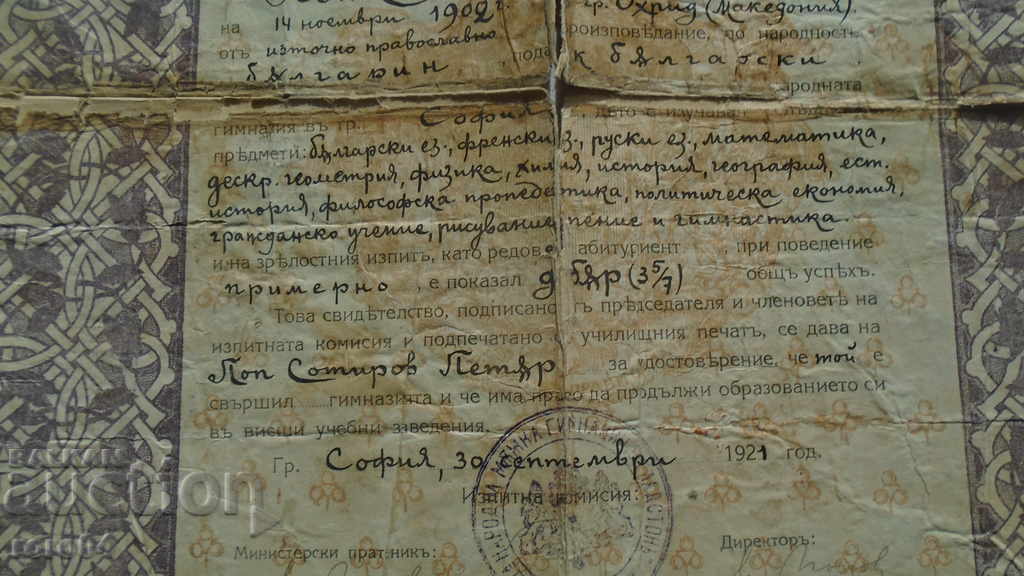 на 14 ноември 1902 г. гр. Охрид (Македония).
отъ източно православно произповѣдание, по народность
бѫлгарин, пода к бѫлгарски.
ародната
гимназия въ гр. София, дето е изучавал
прѣдмети: бѫлгарски ез., френски з., руски ез., математика,
дескр. геометрия, физика, химия, история, география, ест.
история, философска пропедевтика, политическа економия,
гражданско учение, рисуване, пение и гимнастика.
и на зрѣлостния изпитъ, като редов абитуриент при поведение
примерно, е показал добѫр (3 5/7) общъ успѣхъ.
Това свидѣтелство, подписано тъ прѣтседателя и членоветѣ на
изпитната комисия и подпечатано с училищния печатъ, се дава на
Поп Сотиров Петѫр за удостовѣрение, че той е
свършил гимназията и че има право да продължи образованието си
въ висши учебни заведения.
Гр. София, 30 септември 1921 год.
Изпитна комисия:
Министерски пратникъ: Директоръ:
БАЛКАН
auction